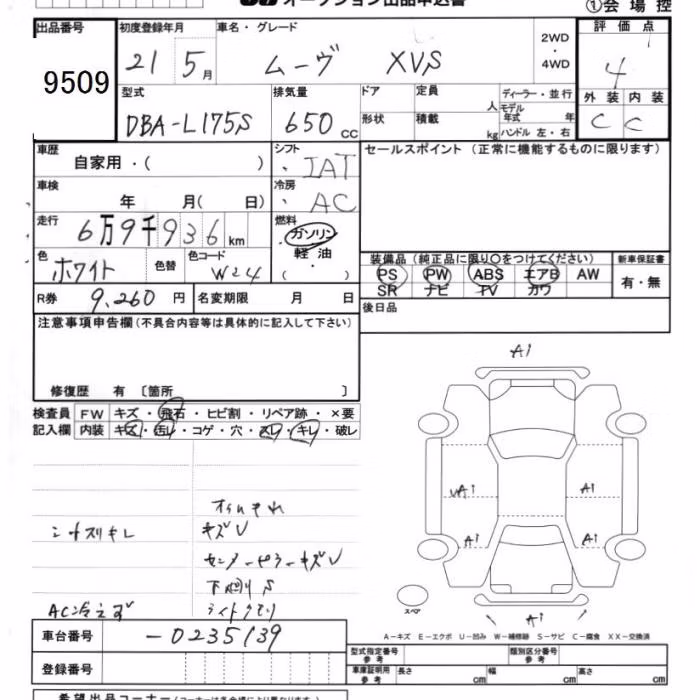 オークション出品申込書
①会場控
出品番号
9509
初度登録年月
21 5月
車名・グレード
ムーヴ XVS
2WD
・
4WD
評価点
4
型式
DBA-L175S
排気量
650cc
ドア
形状
定員 人
積載 kg
ディーラー・並行
モデル年式 年
ハンドル 左・右
外装 内装
C C
車歴
自家用・( )
シフト
IAT
セールスポイント(正常に機能するものに限ります)
車検
年 月( 日)
冷房
AC
走行
6万9千936km
燃料
ガソリン
・
軽油
・( )
色
ホワイト
色替
色コード
W24
装備品(純正品に限り〇をつけてください)
新車保証書
PS PW ABS エアB AW
SR ナビ TV カワ
有・無
R券 9,260円
名変期限 月 日
後日品
注意事項申告欄(不具合内容等は具体的に記入して下さい)
修復歴 有〔箇所 〕
検査員記入欄
FW キズ・飛石・ヒビ割・リペア跡・×要
内装 キズ・汚レ・コゲ・穴・スレ・キレ・破レ
シートスリキレ
キズV
センターピラーキズV
下廻りS
AC冷えず
ライトクモリ
A1
A1
A1
A1
A1
A1
スペア
A-キズ E-エクボ U-凹み W-補修跡 S-サビ C-腐食 XX-交換済
車台番号
-0235139
登録番号
型式指定番号 参考
類別区分番号 参考
車庫証明用 参考
長さ cm
幅 cm
高さ cm
希望出品コーナー